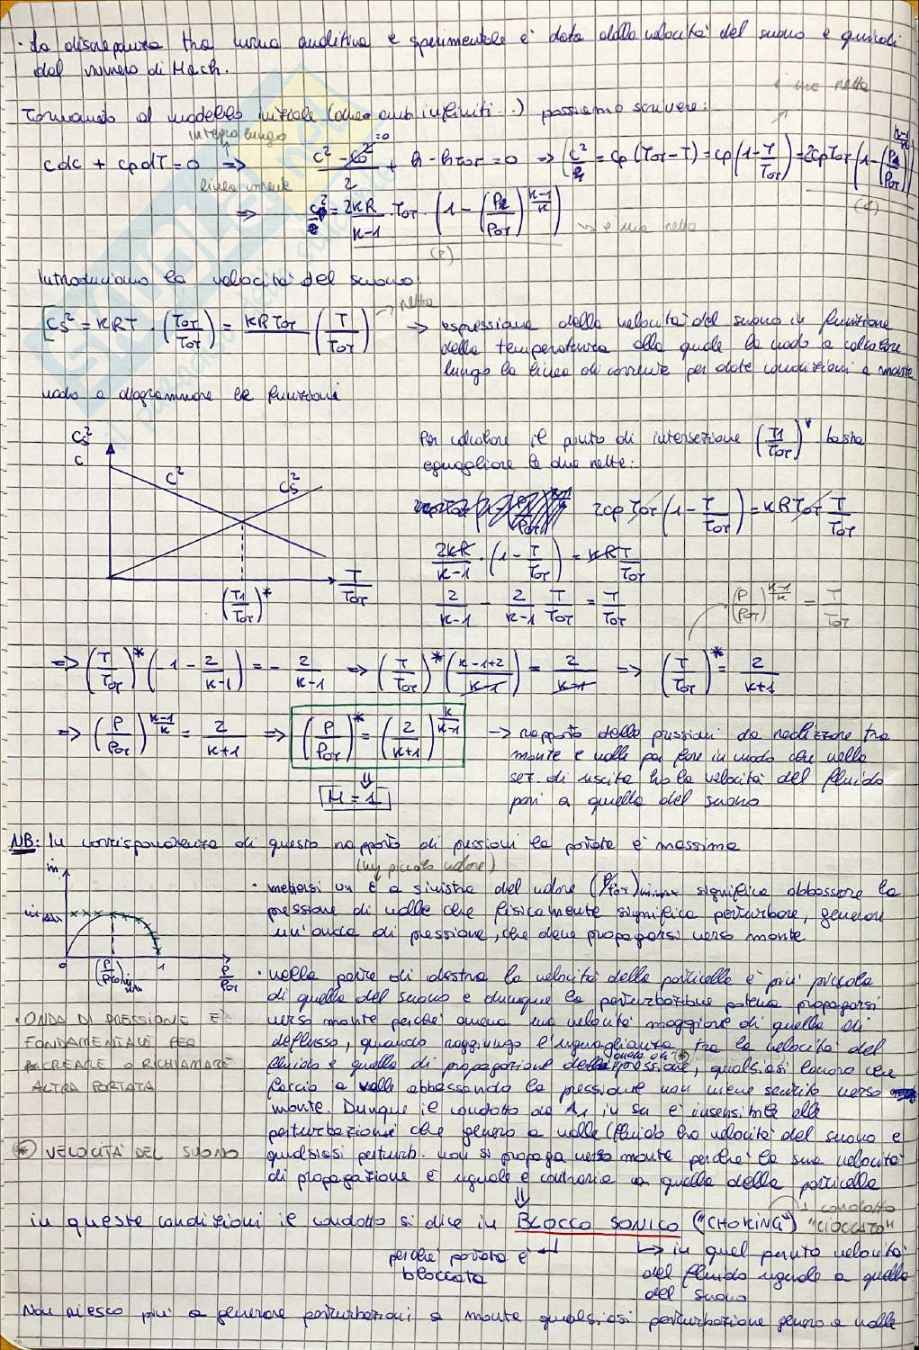 · La discrepanza tra curva analitica e sperimentale è data dalla velocità del suono e quindi
dal numero di Mach.
Tornando al modello iniziale (ambienti infiniti..) possiamo scrivere:
è una retta
integro lungo
linea
cdc + cpdT = 0 ⇒ (c² - c₀²)/2 + h - hTOT = 0 ⇒ c²/2 = cp (TOT - T) = cp (1 - T/TOT) = 2cpTOT (1 - (P2/POT)^((k-1)/k))
(d)
⇒ c² = 2kR/(k-1) · TOT · (1 - (P2/POT)^((k-1)/k)) → è una retta
(P)
Introduciamo la velocità del suono:
Cs² = KRT · (TOT/TOT) = KRTOT (T/TOT) → retta
→ espressione della velocità del suono in funzione
della temperatura alla quale la vado a calcolare
lungo la linea di corrente per date condizioni a monte
vado a diagrammare le funzioni
Cs²
C
C²
Cs²
T/TOT
(T1/TOT)*
Per calcolare il punto di intersezione (T1/TOT)* basta
eguagliare le due rette:
2cp TOT (1 - T/TOT) = KRTOT T/TOT
2kR/(k-1) · (1 - T/TOT) = KRT/TOT
2/(k-1) - 2/(k-1) T/TOT = T/TOT
(P/POT)^((k-1)/k) = T/TOT
⇒ (T/TOT)* (-1 - 2/(k-1)) = - 2/(k-1) ⇒ (T/TOT)* ((k-1+2)/(k-1)) = 2/(k-1) ⇒ (T/TOT)* = 2/(k+1)
⇒ (P/POT)^((k-1)/k) = 2/(k+1) ⇒ (P/POT)* = (2/(k+1))^(k/(k-1))
⇓
M = 1
→ rapporto delle pressioni da realizzare tra
monte e valle per fare in modo che nella
sez. di uscita ho la velocità del fluido
pari a quella del suono
NB: In corrispondenza di questo rapporto di pressioni la portata è massima
ṁ
0
1
P/POT
(un piccolo valore)
· mettersi un è a sinistra del valore (P/POT) significa abbassare la
pressione di valle che fisicamente significa perturbare, generare
un'onda di pressione, che deve propagarsi verso monte
· nella parte di destra la velocità delle particelle è più piccola
di quella del suono e dunque la perturbazione poteva propagarsi
verso monte perché aveva una velocità maggiore di quella di
deflusso, quando raggiungo l'uguaglianza tra la velocità del
fluido e quella di propagazione della pressione, qualsiasi lavoro che
faccio a valle abbassando la pressione non viene sentito verso
monte. Dunque il condotto da A1 in su è insensibile alle
perturbazioni che genero a valle (fluido ha velocità del suono e
qualsiasi perturb. non si propaga verso monte perché la sua velocità
di propagazione è uguale e contraria a quella della particella
· ONDA DI PRESSIONE È
FONDAMENTALE PER
RICREARE O RICHIAMARE
ALTRA PORTATA
⊛ VELOCITÀ DEL SUONO
⇓
in queste condizioni il condotto si dice in BLOCCO SONICO ("CHOKING") "CIOCCATO"
condotto
perché portata è
bloccata
↳ in quel punto velocità
del fluido uguale a quella
del suono
Non riesco più a generare perturbazioni a monte qualsiasi perturbazione genero a valle